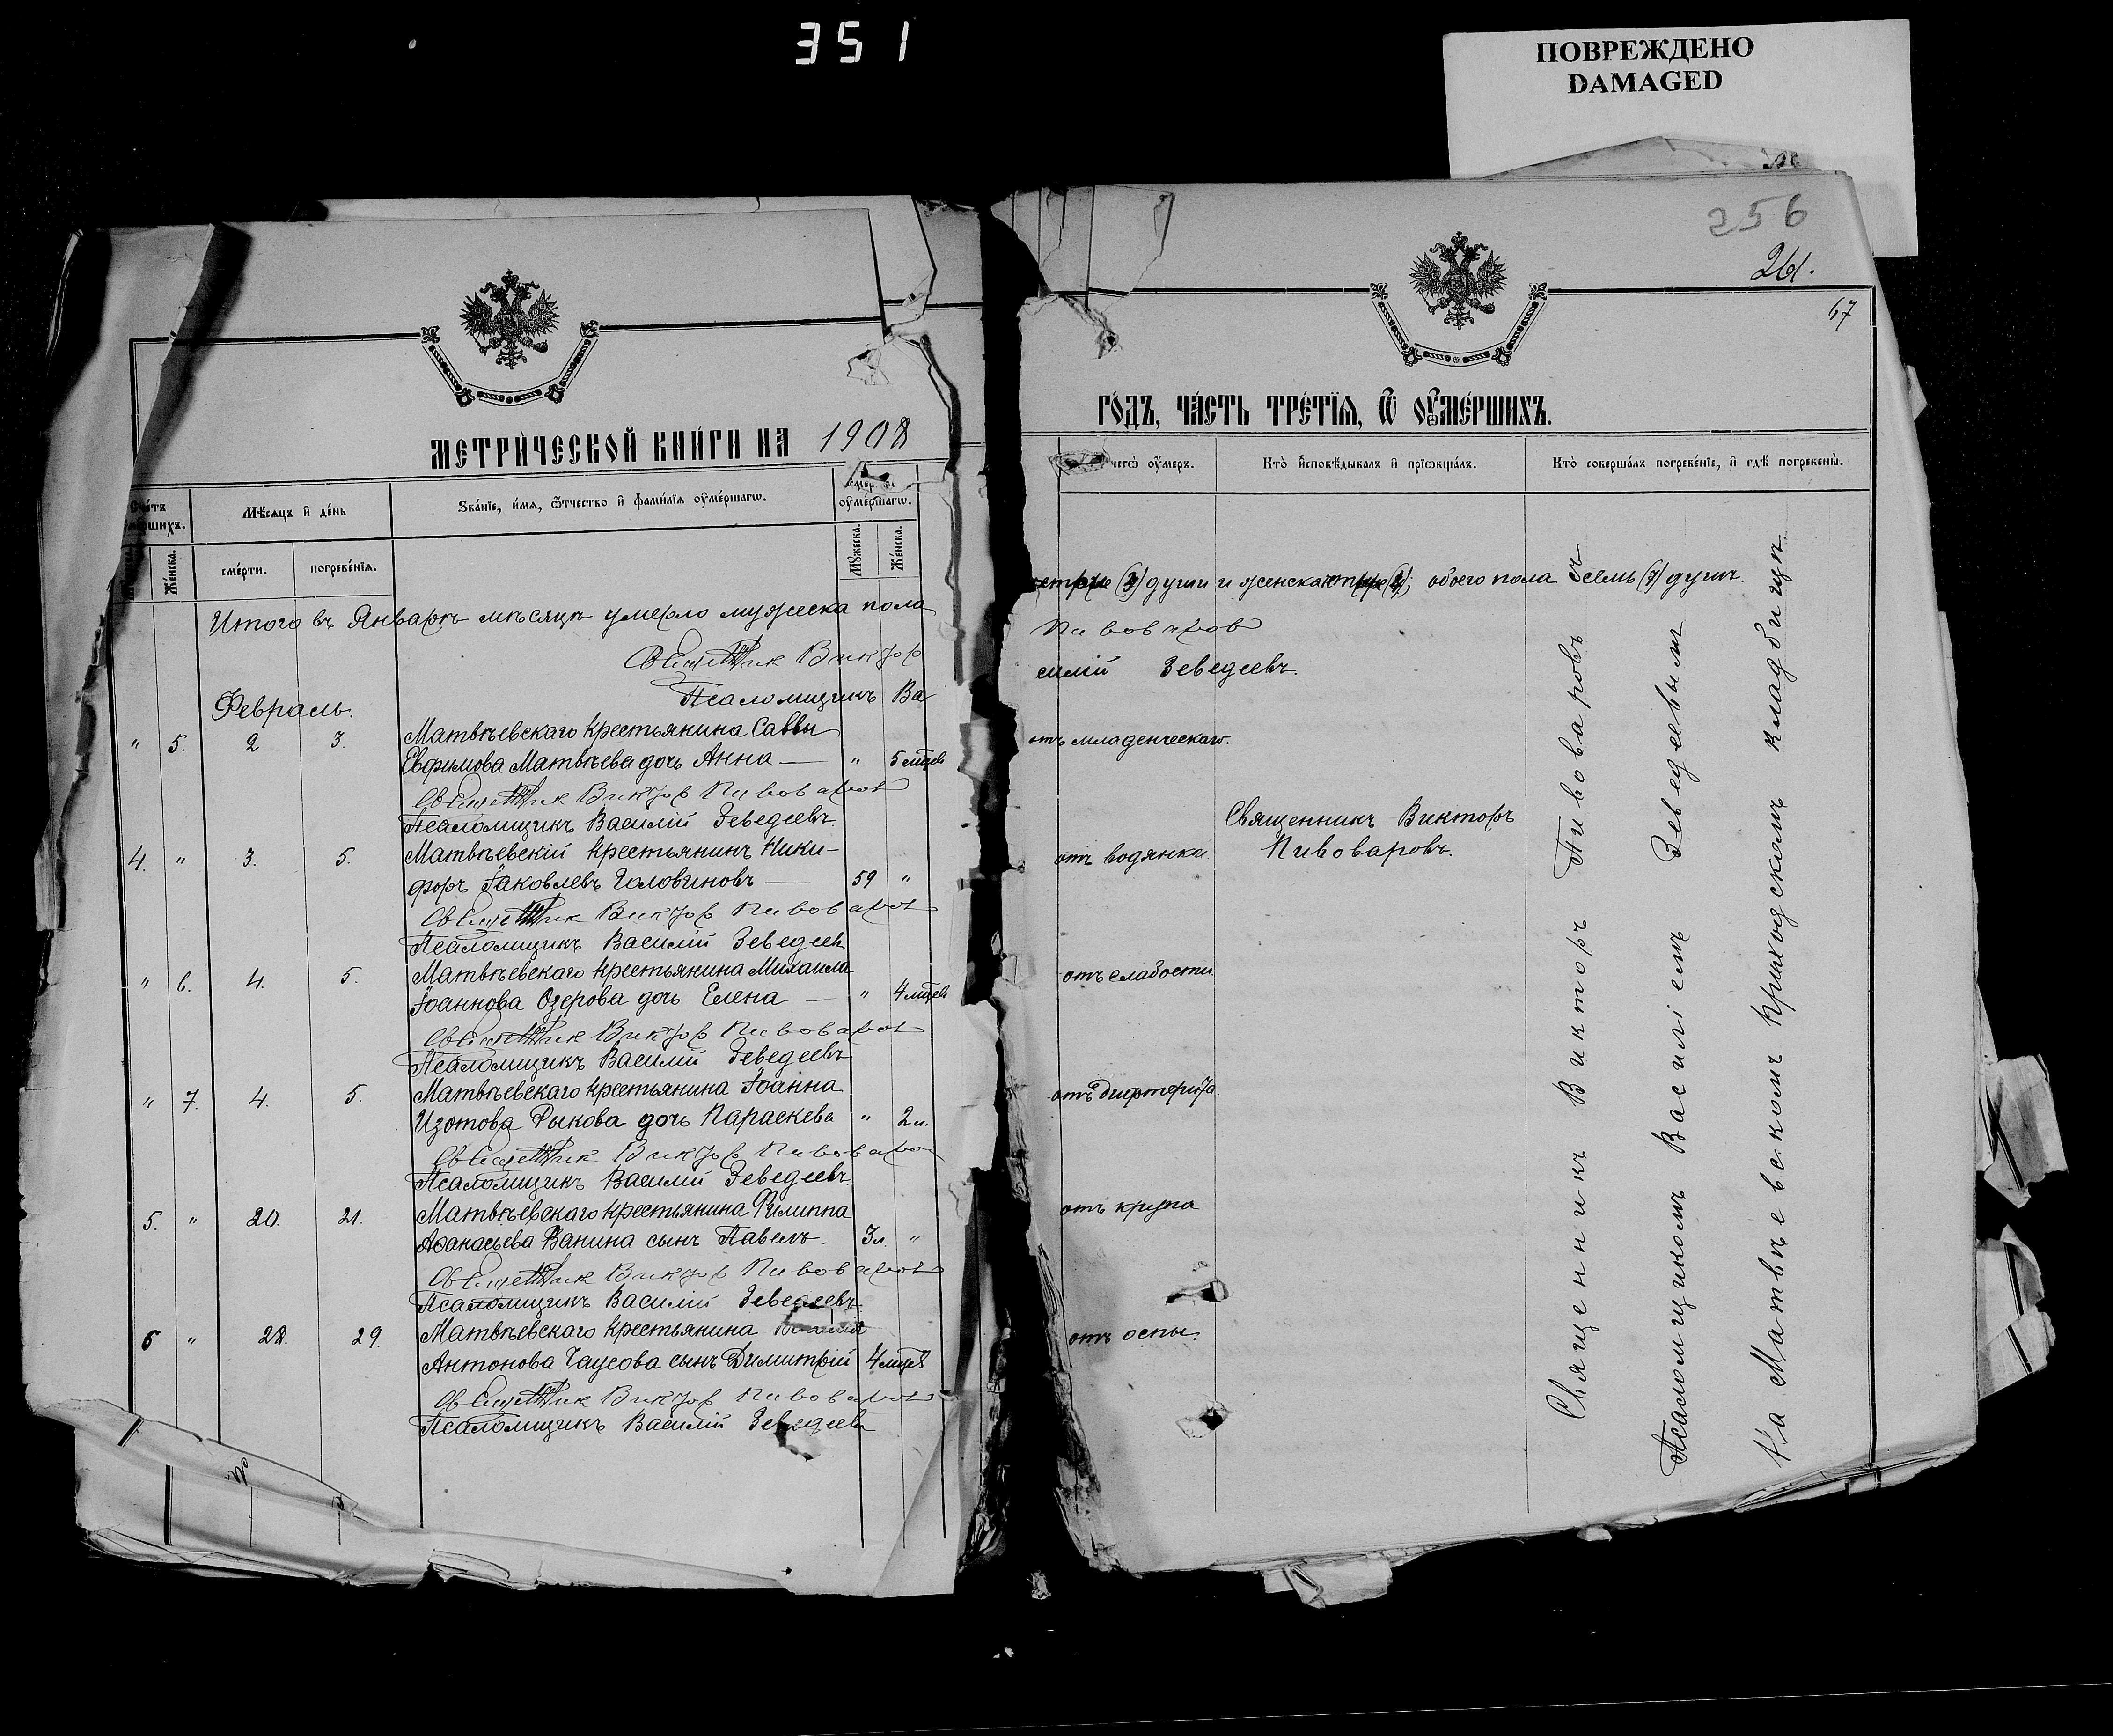 351
ПОВРЕЖДЕНО
DAMAGED
256
261.
67
МЕТРИ́ЧЕСКОЙ КНИ́ГИ НА 1908
ГО́ДЪ, ЧА́СТЬ ТРЕ́ТЇѦ, Ѿ ОУ҆МЕ́РШИХЪ.
Мѣсяцъ и день
Ѕва́нїе, и҆́мѧ, ѻ҆́тчество и҆ фами́лїѧ оу҆ме́ршагѡ.
оу҆ме́ршагѡ.
чегѡ̀ оу҆́меръ.
Кто̀ и҆сповѣ́дывалъ и҆ прїѡбща́лъ.
Кто̀ соверша́лъ погребе́нїе, и҆ гдѣ̀ погребены̀.
Же́нска.
сме́рти.
погребе́нїѧ.
Мꙋ́жеска.
Же́нска.
Итого въ Январѣ мѣсяцѣ умерло мужеска пола
души и женска обоего пола семь (7) душъ.
Священник Виктор Пивоваров
Псаломщикъ Василій Зеведеевъ.
Февраль.
" 5. 2 3. Матвѣевскаго крестьянина Саввы
Евфимова Матвѣева дочь Анна — " 5 мцевъ
отъ младенческаго.
Священник Виктор Пивоваров
Псаломщикъ Василій Зеведеевъ.
4. " 3. 5. Матвѣевскій крестьянинъ Ники-
форъ Іаковлевъ Головиновъ — 59 "
отъ водянки.
Священникъ Викторъ
Пивоваровъ.
Священник Виктор Пивоваров
Псаломщикъ Василій Зеведеевъ
" 6. 4. 5. Матвѣевскаго крестьянина Михаила
Іоаннова Озерова дочь Елена — " 4 мцевъ
отъ слабости.
Священник Виктор Пивоваров
Псаломщикъ Василій Зеведеевъ
" 7. 4. 5. Матвѣевскаго крестьянина Іоанна
Изотова Рыкова дочь Параскева " 2 л.
отъ дифтерита.
Священник Виктор Пивоваров
Псаломщикъ Василій Зеведеевъ.
5. " 20. 21. Матвѣевскаго крестьянина Филиппа
Аѳанасьева Ванина сынъ Павелъ - 3 л. "
отъ крупа
Священник Виктор Пивоваров
Псаломщикъ Василій Зеведеевъ.
6 " 28. 29. Матвѣевскаго крестьянина
Антонова Чаусова сынъ Димитрій 4 мцевъ
отъ оспы.
Священник Виктор Пивоваров
Псаломщикъ Василій Зеведеевъ
Священникъ Викторъ Пивоваровъ съ
Псаломщикомъ Василіемъ Зеведеевымъ
На Матвѣевскомъ приходскомъ кладбищѣ.